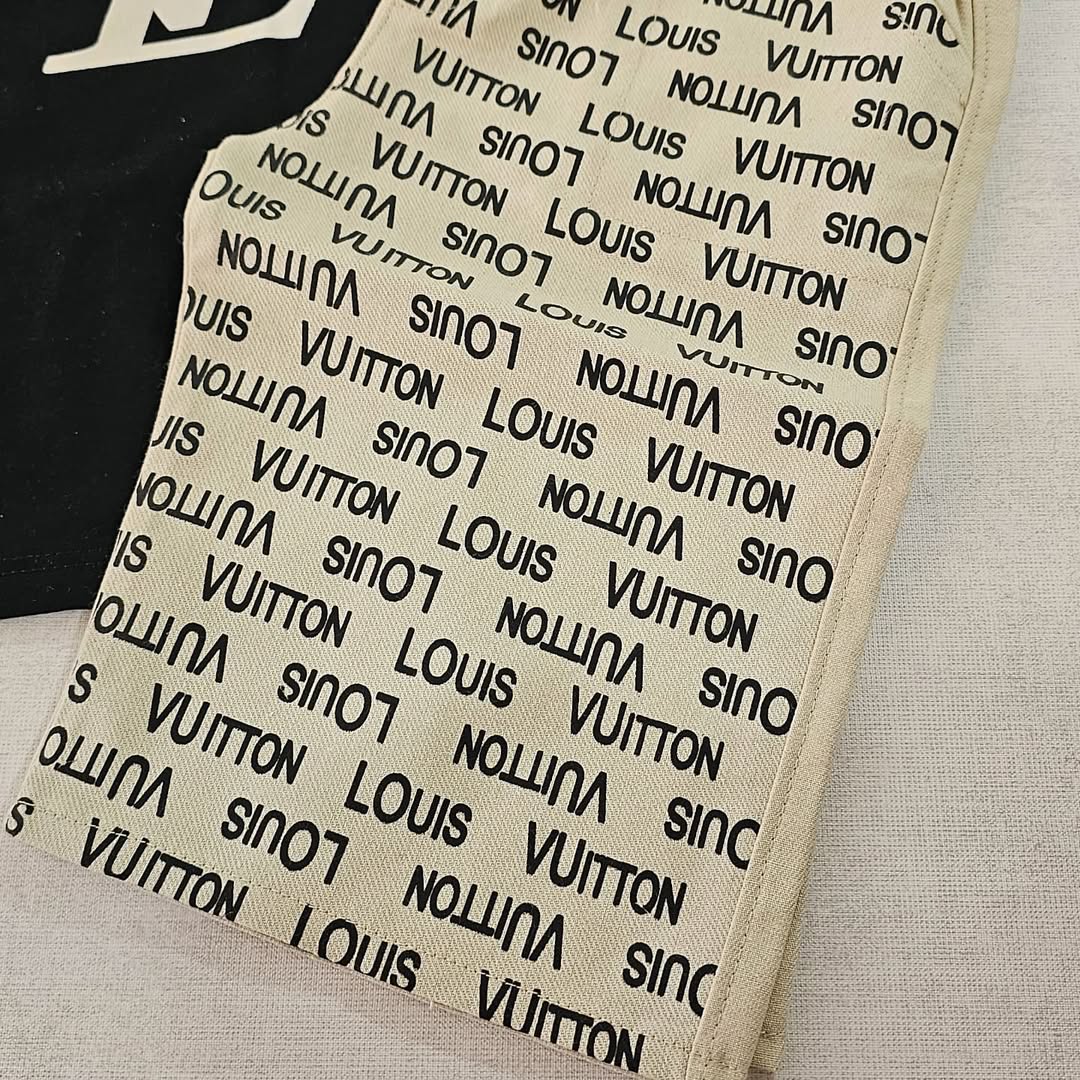 VUITTON LOUIS
LOUIS VUITTON
VUITTON LOUIS VUITTON LOUIS
VUITTON LOUIS VUITTON
VUITTON LOUIS VUITTON LOUIS
UIS VUITTON LOUIS VUITTON
VUITTON LOUIS VUITTON LOUIS
OUIS VUITTON LOUIS VUITTON
VUITTON LOUIS VUITTON LOUIS
OUIS VUITTON LOUIS VUITTON
VUITTON LOUIS VUITTON LOUIS
UIS VUITTON LOUIS VUITTON
VUITTON LOUIS VUITTON LOUIS
IS VUITTON LOUIS VUITTON
VUITTON LOUIS VUITTON LOUIS
S VUITTON LOUIS VUITTON
VUITTON LOUIS VUITTON LOUIS
S VUITTON LOUIS VUITTON